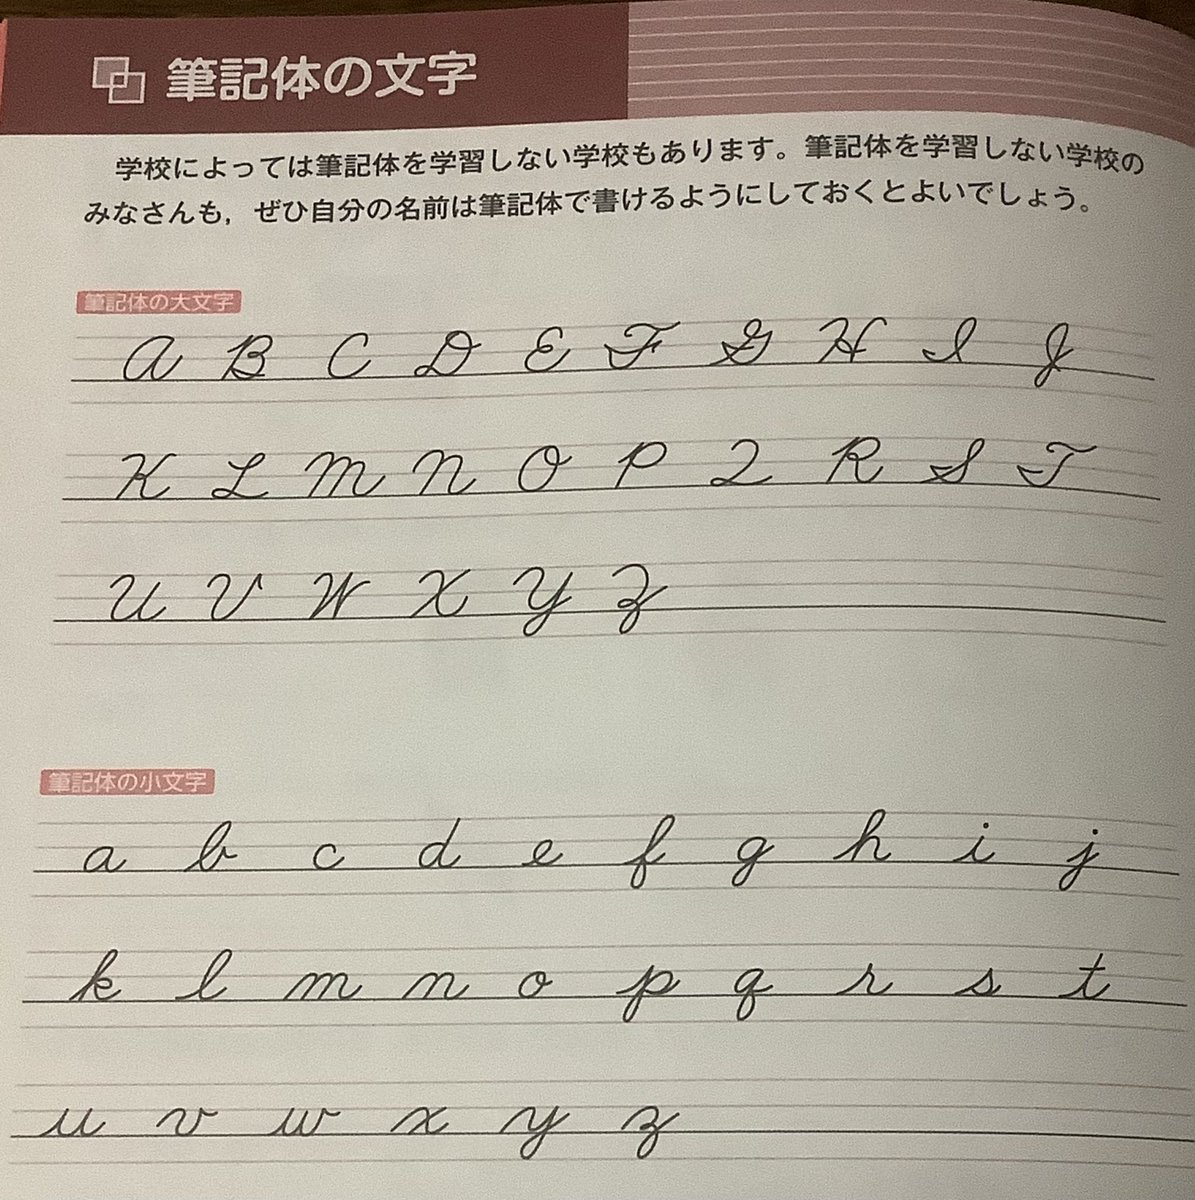 筆記体の文字
学校によっては筆記体を学習しない学校もあります。筆記体を学習しない学校の
みなさんも，ぜひ自分の名前は筆記体で書けるようにしておくとよいでしょう。
筆記体の大文字
A B C D E F G H I J
K L M N O P Q R S T
U V W X Y Z
筆記体の小文字
a b c d e f g h i j
k l m n o p q r s t
u v w x y z